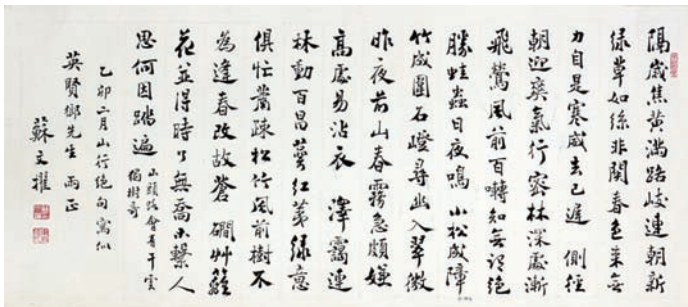 隔歲焦黃滿路歧連朝新
綠草如絲非關春色來無
力自是寒威去已遲 側徑
朝迎爽氣行密林深處漸
飛鶯風前百囀知無謂絕
勝蛙蟲日夜鳴 小松成障
竹成圍石磴尋幽入翠微
昨夜前山春霧急頗嫌
高處易沾衣 澤靄連
林動百昌萼紅荑綠意
俱忙蕭疎松竹風前樹不
為逢春改故蒼 磵艸籬
花並得時了無喬木繫人
思何因踏遍
山頭路會有干雲
獨樹奇
乙卯二月山行絕句寫似
英賢鄉先生 兩正
蘇文擢